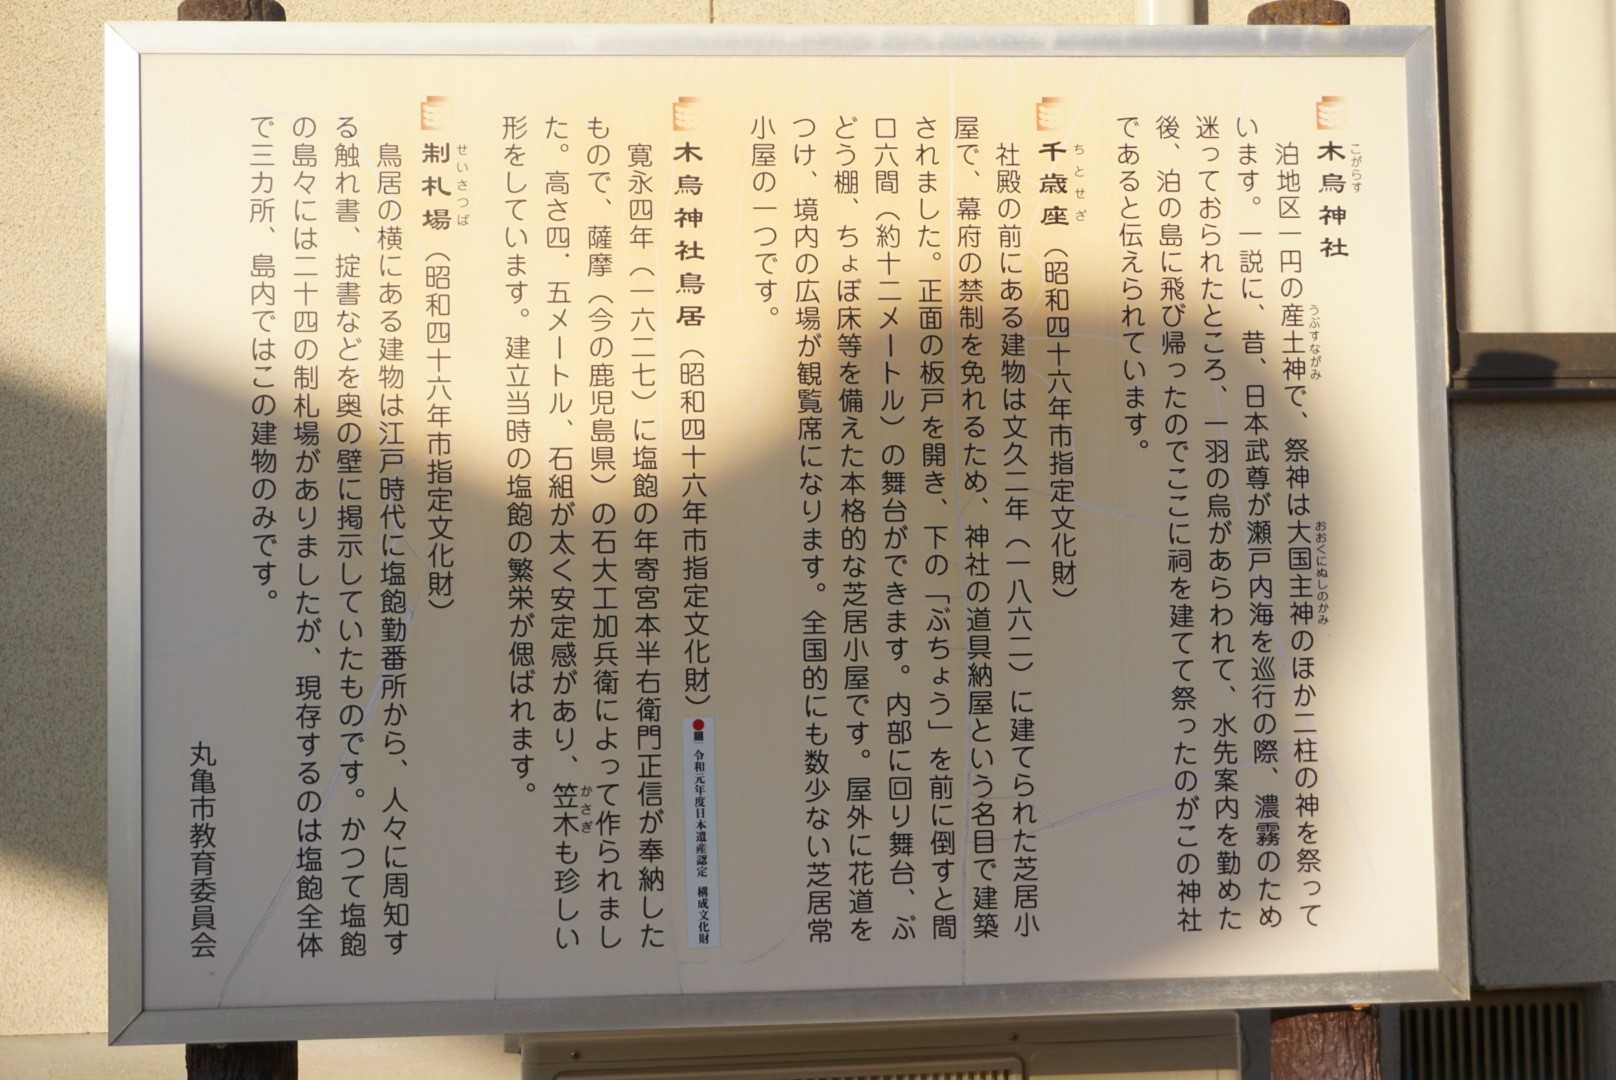 木烏神社
こがらす
泊地区一円の産土神で、祭神は大国主神のほか二柱の神を祭って
うぶすながみ
おおくにぬしのかみ
います。一説に、昔、日本武尊が瀬戸内海を巡行の際、濃霧のため
迷っておられたところ、一羽の烏があらわれて、水先案内を勤めた
後、泊の島に飛び帰ったのでここに祠を建てて祭ったのがこの神社
であると伝えられています。
千歳座(昭和四十六年市指定文化財)
ちとせざ
社殿の前にある建物は文久二年(一八六二)に建てられた芝居小
屋で、幕府の禁制を免れるため、神社の道具納屋という名目で建築
されました。正面の板戸を開き、下の「ぶちょう」を前に倒すと間
口六間(約十二メートル)の舞台ができます。内部に回り舞台、ぶ
どう棚、ちょぼ床等を備えた本格的な芝居小屋です。屋外に花道を
つけ、境内の広場が観覧席になります。全国的にも数少ない芝居常
小屋の一つです。
木烏神社鳥居(昭和四十六年市指定文化財)
令和元年度日本遺産認定 構成文化財
寛永四年(一六二七)に塩飽の年寄宮本半右衛門正信が奉納した
もので、薩摩(今の鹿児島県)の石大工加兵衛によって作られまし
た。高さ四.五メートル、石組が太く安定感があり、笠木も珍しい
かさぎ
形をしています。建立当時の塩飽の繁栄が偲ばれます。
制札場(昭和四十六年市指定文化財)
せいさつば
鳥居の横にある建物は江戸時代に塩飽勤番所から、人々に周知す
る触れ書、掟書などを奥の壁に掲示していたものです。かつて塩飽
の島々には二十四の制札場がありましたが、現存するのは塩飽全体
で三カ所、島内ではこの建物のみです。
丸亀市教育委員会